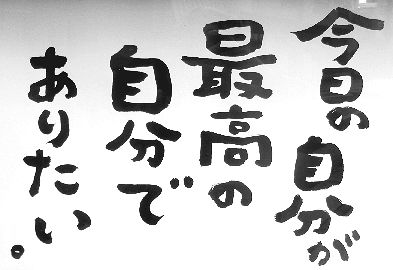 今日の自分が
最高の
自分で
ありたい。